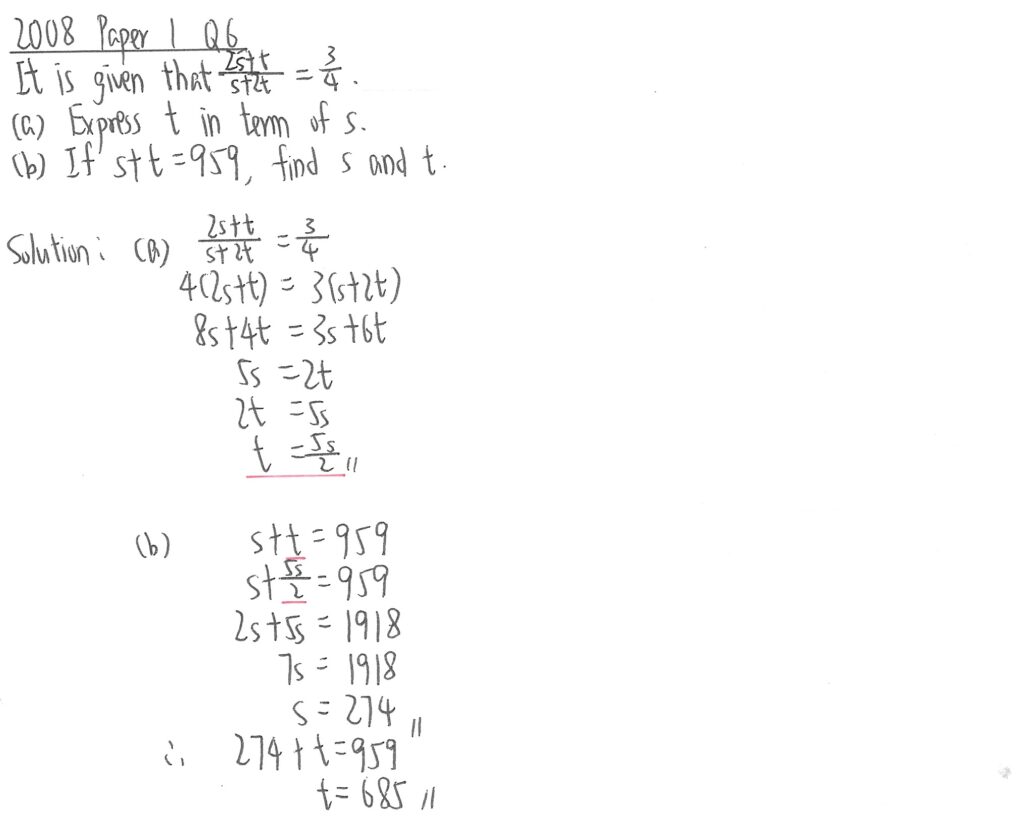 2008 Paper 1 Q6
It is given that (2s+t)/(s+2t) = 3/4.
(a) Express t in term of s.
(b) If s+t=959, find s and t.
Solution: (a) (2s+t)/(s+2t) = 3/4
4(2s+t) = 3(s+2t)
8s+4t = 3s+6t
5s = 2t
2t = 5s
t = 5s/2 //
(b) s+t = 959
s+5s/2 = 959
2s+5s = 1918
7s = 1918
s = 274 //
∴ 274 + t = 959
t = 685 //